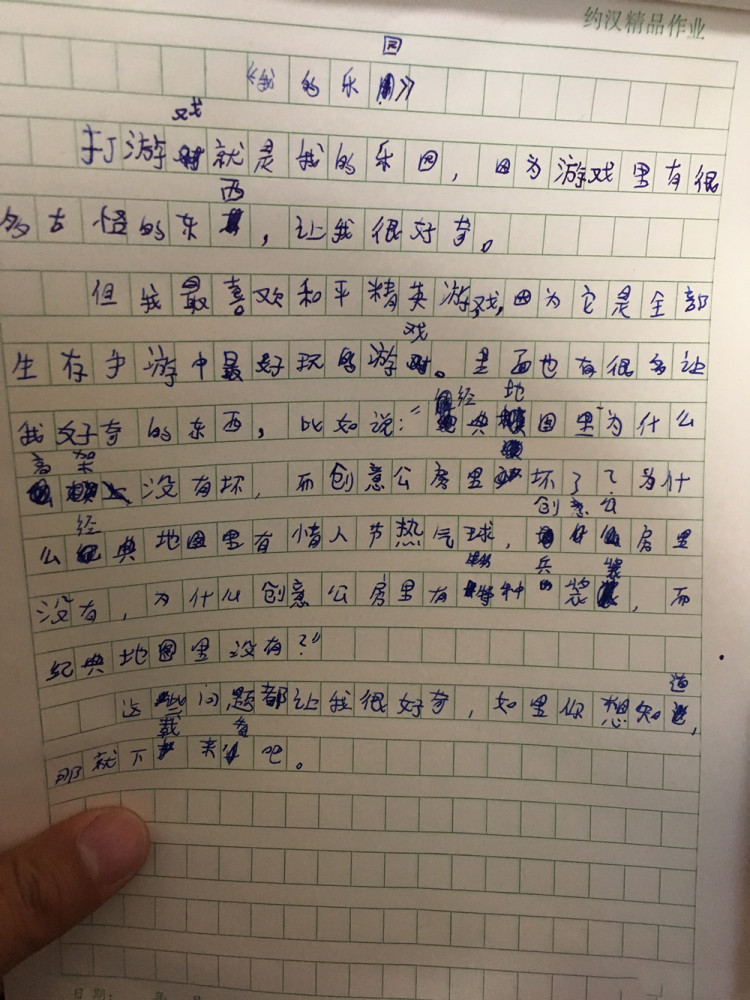 约汉精品作业
《我的乐园》
打游戏就是我的乐园，因为游戏里有很
多古怪的东西，让我很好奇。
但我最喜欢和平精英游戏，因为它是全部
生存手游中最好玩的游戏。里面也有很多让
我好奇的东西，比如说：“经典地图里为什么
高架没有坏，而创意公房里坏了？为什
么经典地图里有情人节热气球，创意公房里
没有，为什么创意公房里有特种兵的装，而
纪典地图里没有？”
这些问题都让我很好奇，如里你想知道，
那就下载来看吧。
日期：